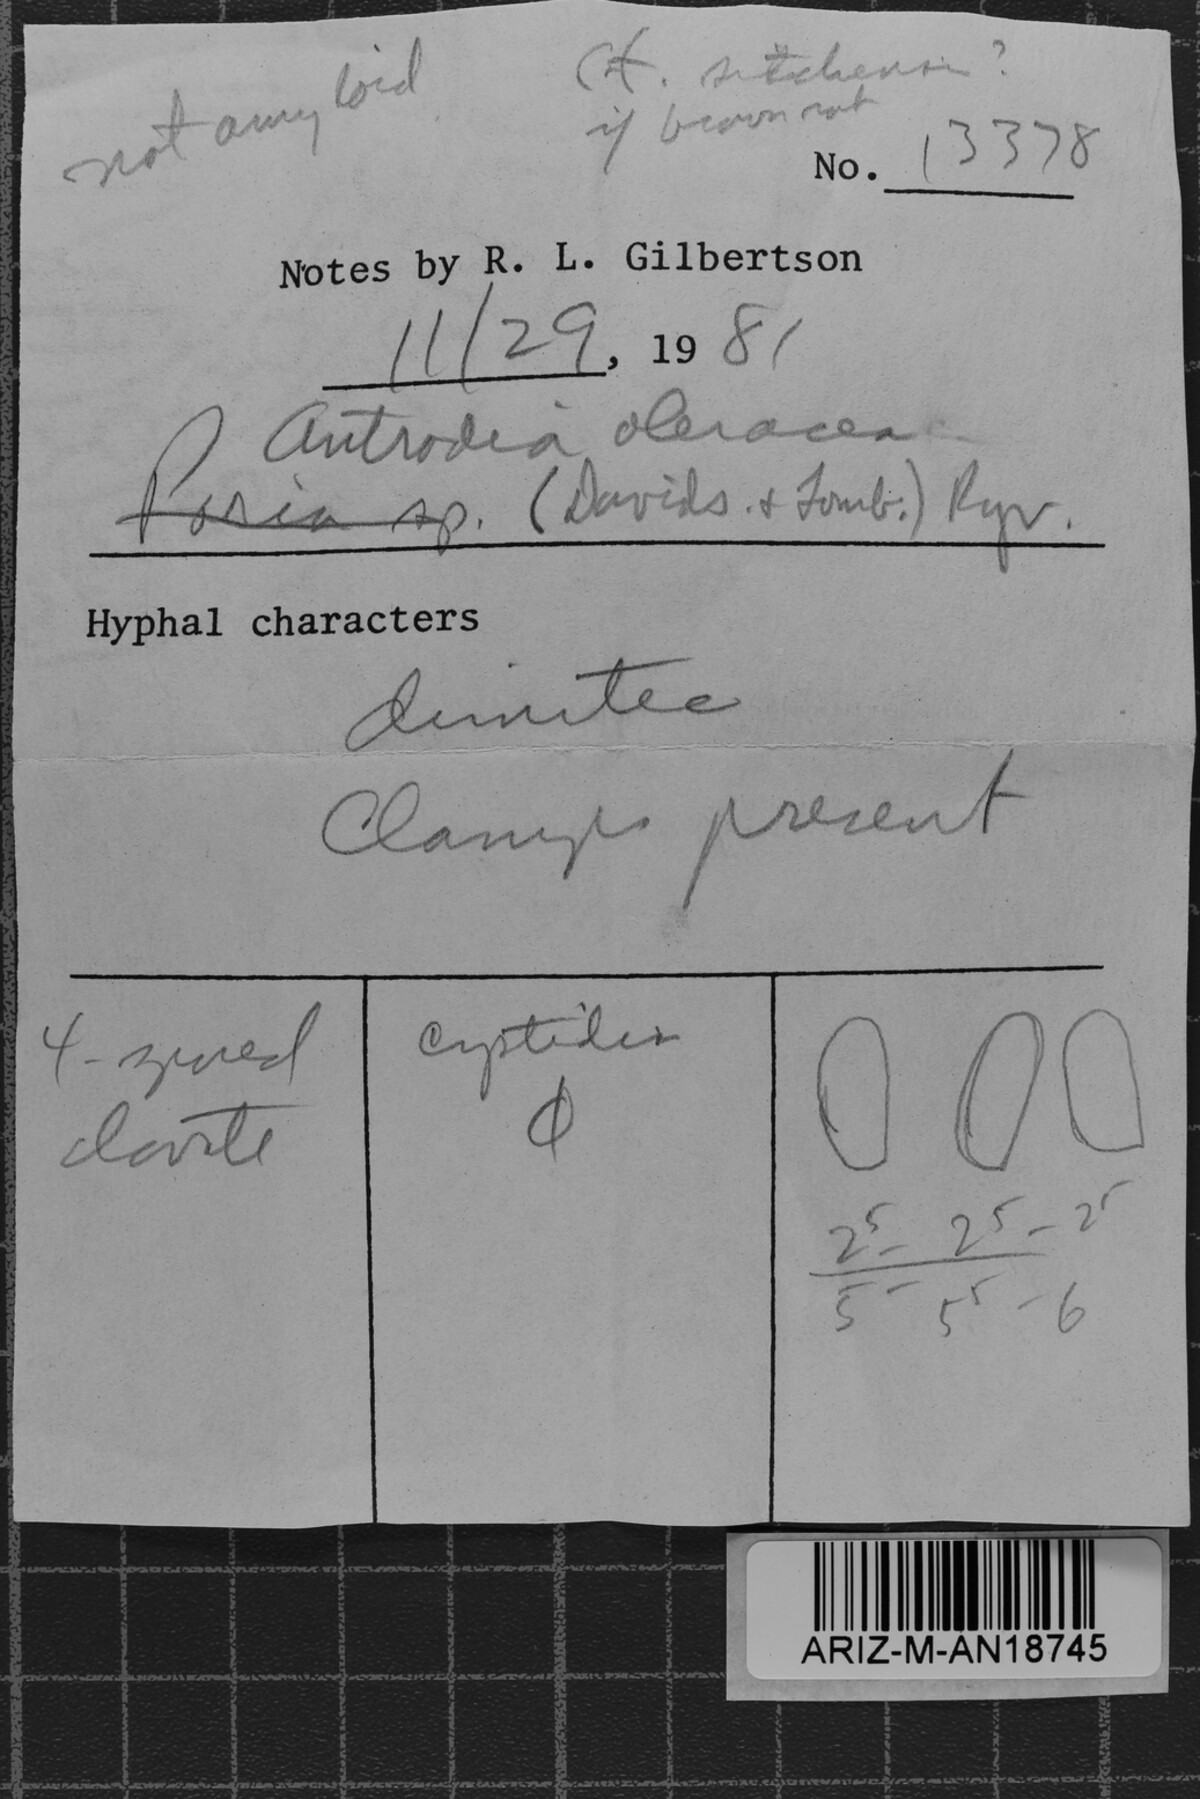 not amyloid
Cf. sitchensis?
if brown rot
No. 13378
Notes by R. L. Gilbertson
11/29, 1981
Antrodia oleracea
Poria sp. (Davids. & Lomb.) Ryv.
Hyphal characters
dimitic
Clamps present
4-spored
clavate
cystidia
ϕ
2⁵ - 2⁵ - 2⁵
5 - 5⁵ - 6
ARIZ-M-AN18745